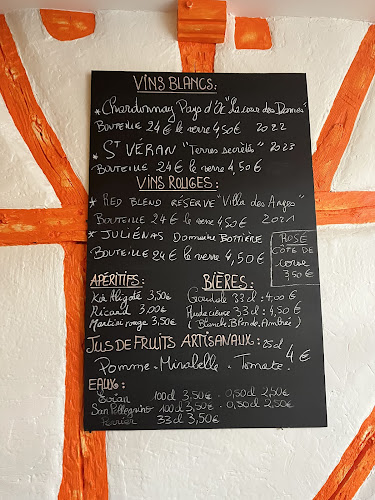 VINS BLANCS :
* Chardonnay Pays d'Oc "La cour des Dames"
BOUTEILLE 24€ le verre 4,50€ 2022
* ST VÉRAN "Terres secrètes" 2023
BOUTEILLE 24€ le verre 4,50€
VINS ROUGES :
* RED BLEND RÉSERVE "Villa des Anges"
BOUTEILLE 24€ le verre 4,50€ 2021
* JULIÉNAS Domaine BOTTIÈRE
BOUTEILLE 24€ le verre 4,50€
ROSÉ
CÔTE DE
CORSE
3,50€
APÉRITIFS :
Kir Aligoté 3,50€
Ricard 3,00€
Martini rouge 3,50€
BIÈRES :
Goudale 33cl : 4,00€
Audacieuse 33cl : 4,50€
(Blanche. Blonde. Ambrée)
JUS DE FRUITS ARTISANAUX : 25cl
Pomme - Mirabelle - Tomate 4€
EAUX :
Evian 100cl 3,50€ - 0,50cl 2,50€
San Pellegrino 100cl 3,50€ - 0,50cl 2,50€
Perrier 33cl 3,50€